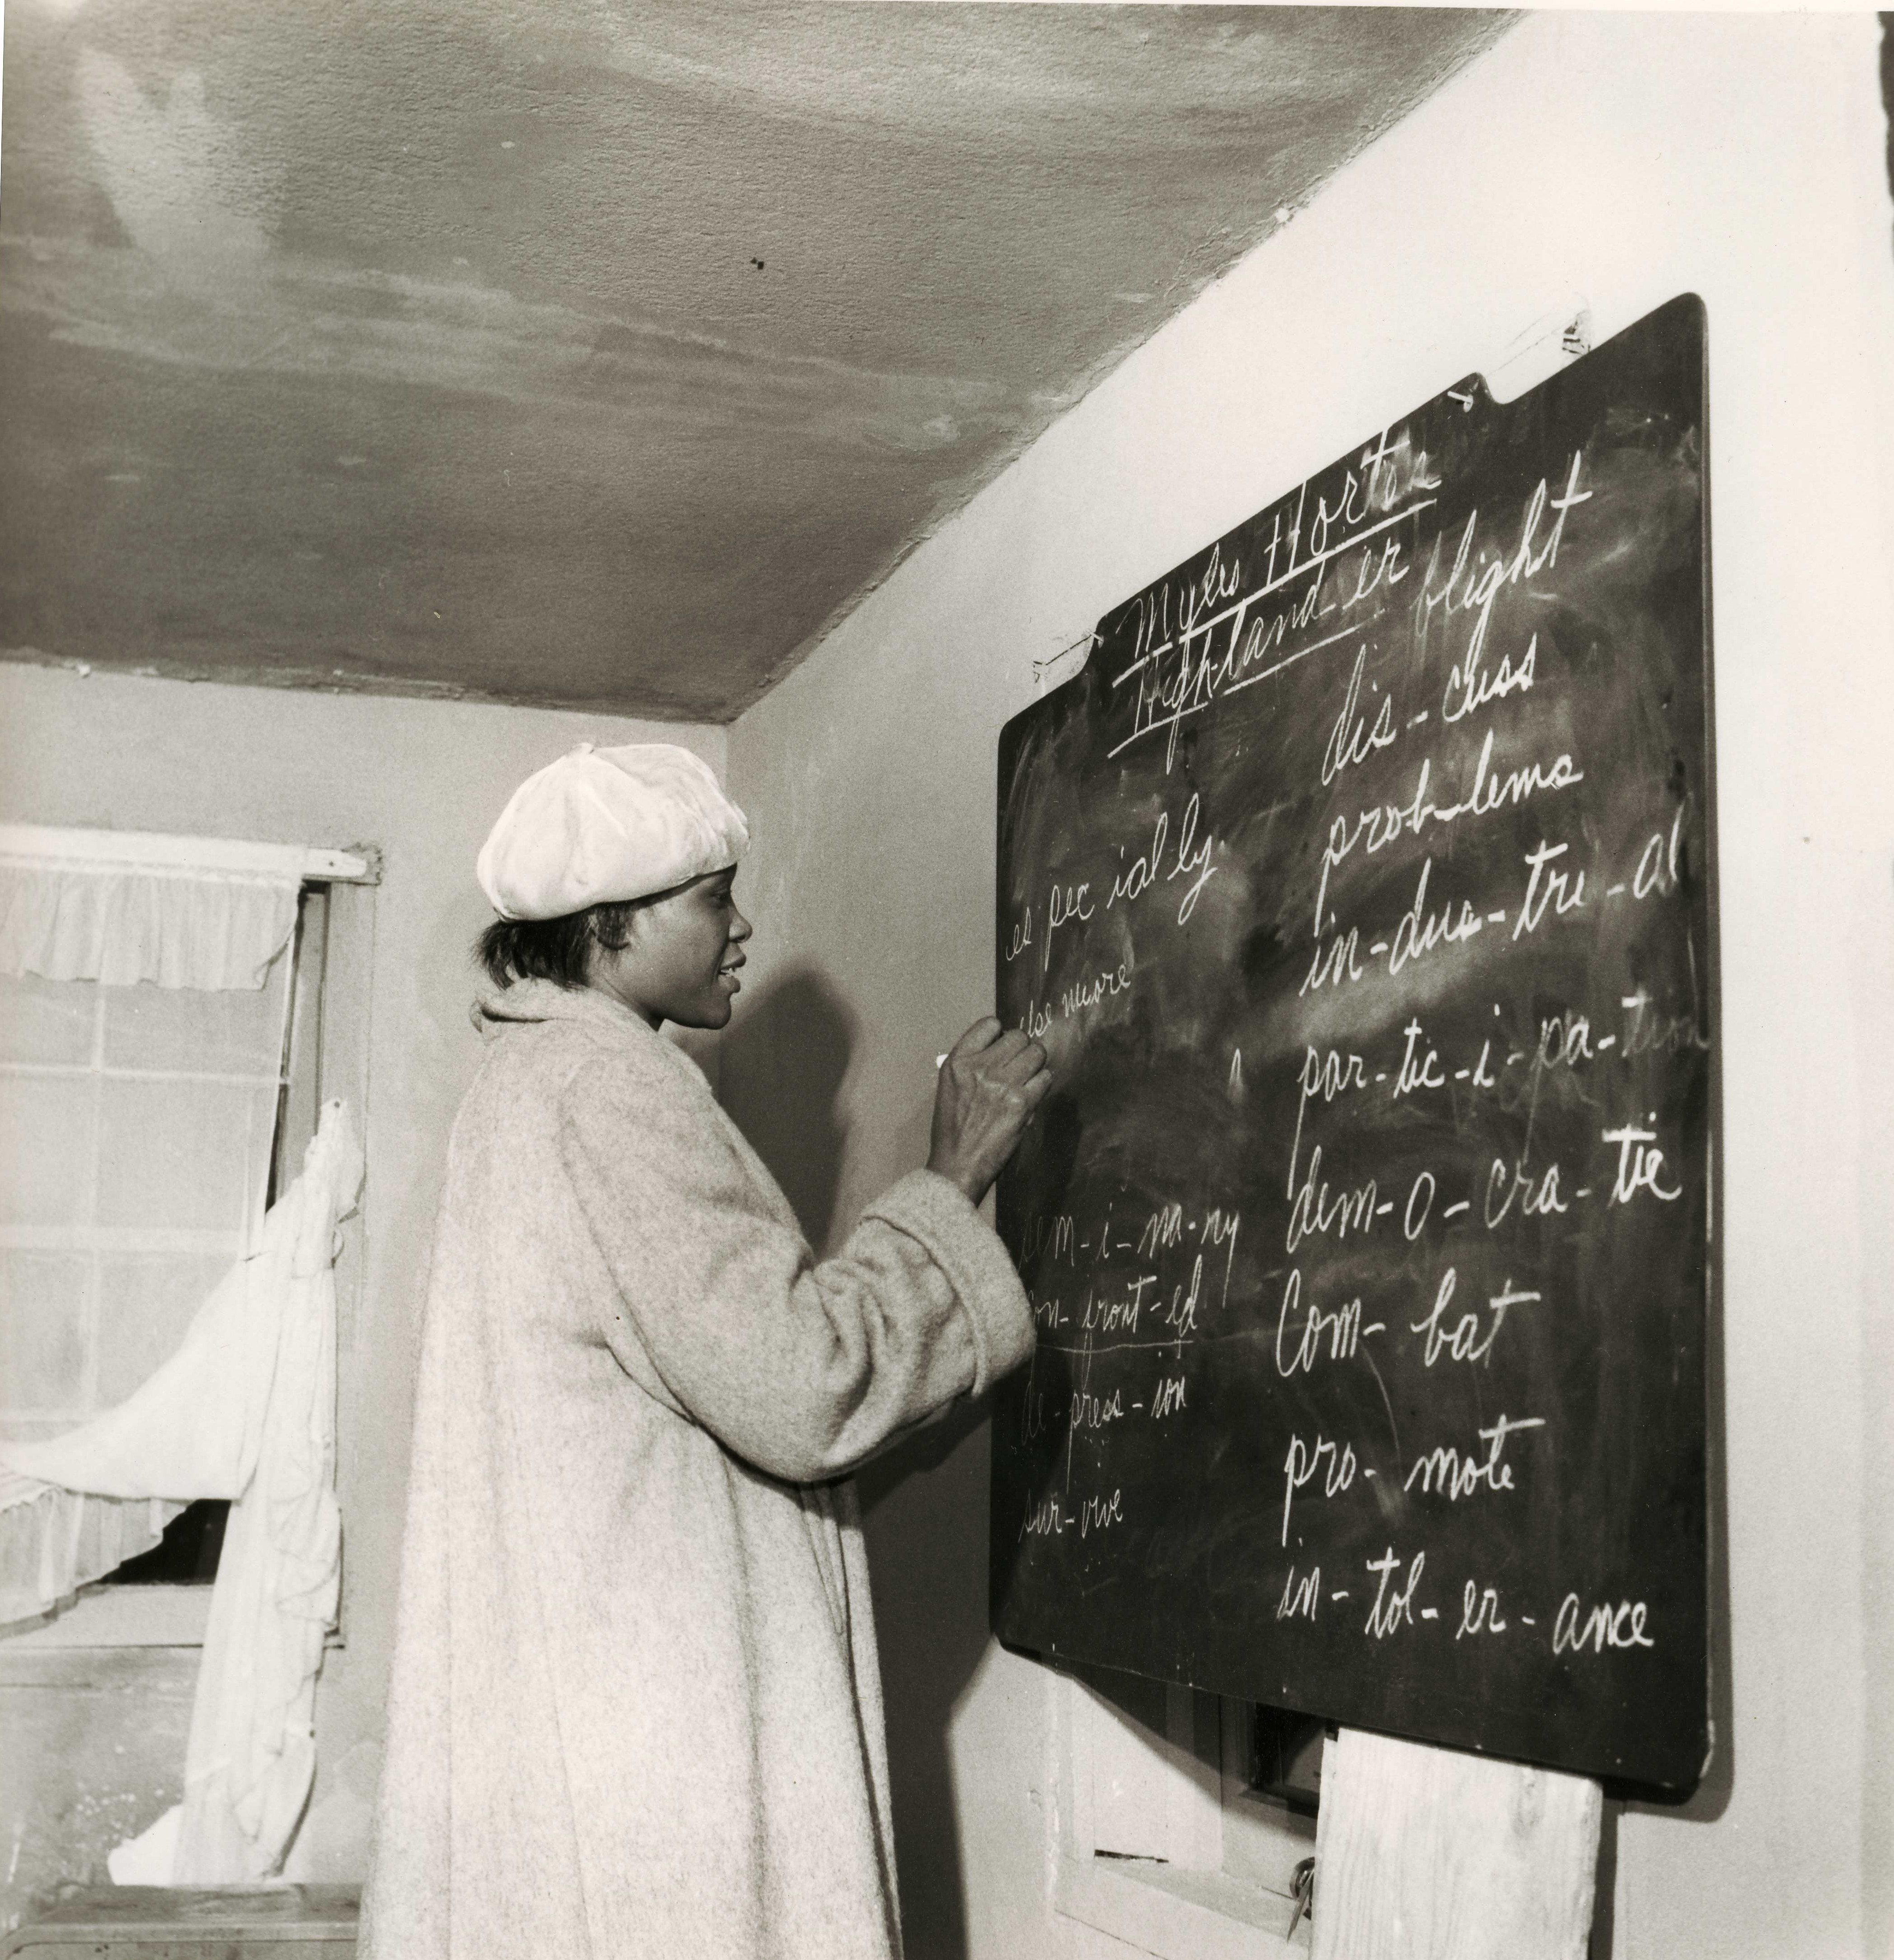 Myles Horton
High-land-er
blight
dis-cuss
prob-lems
in-dus-tri-al
par-tic-i-pa-tion
dem-o-cra-tic
Com-bat
pro-mote
in-tol-er-ance
es pec ial ly
else more
sem-i-na-ry
con-front-ed
de-press-ion
sur-vive